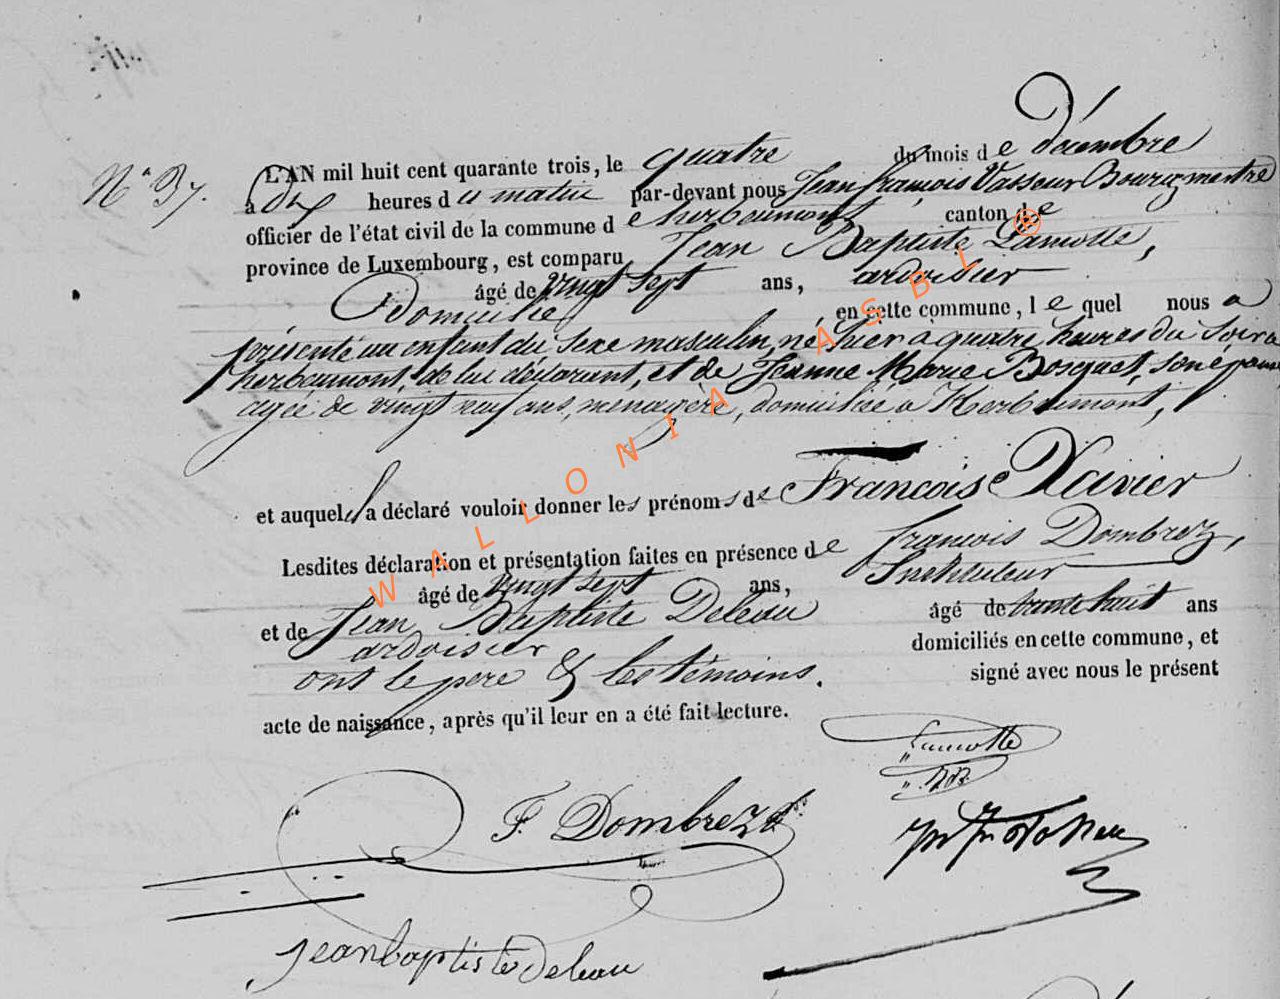 N° 37.
L'AN mil huit cent quarante trois, le quatre du mois de Décembre
à dix heures du matin par-devant nous Jean françois Vasseur Bourgmestre
officier de l'état civil de la commune de herbeumont canton de
province de Luxembourg, est comparu Jean Baptiste Lamotte,
âgé de vingt sept ans, ardoisier
Domicilié en cette commune, lequel nous a
présenté un enfant du sexe masculin, né hier à quatre heures du soir a
herbeumont, de lui déclarant, et de Jeanne Marie Bocquet, son épouse
agée de vingt neuf ans, menagère, domiciliée a Herbeumont,
et auquel il a déclaré vouloir donner les prénoms de Francois Xavier
Lesdites déclaration et présentation faites en présence de françois Dombrez,
âgé de vingt sept ans, Instituteur
et de Jean Baptiste Deleau âgé de trente huit ans
ardoisier domiciliés en cette commune, et
ont le pere & les témoins. signé avec nous le présent
acte de naissance, après qu'il leur en a été fait lecture.
Lamotte
F. Dombrez
jean baptiste deleau
WALLONIA ASBL ®